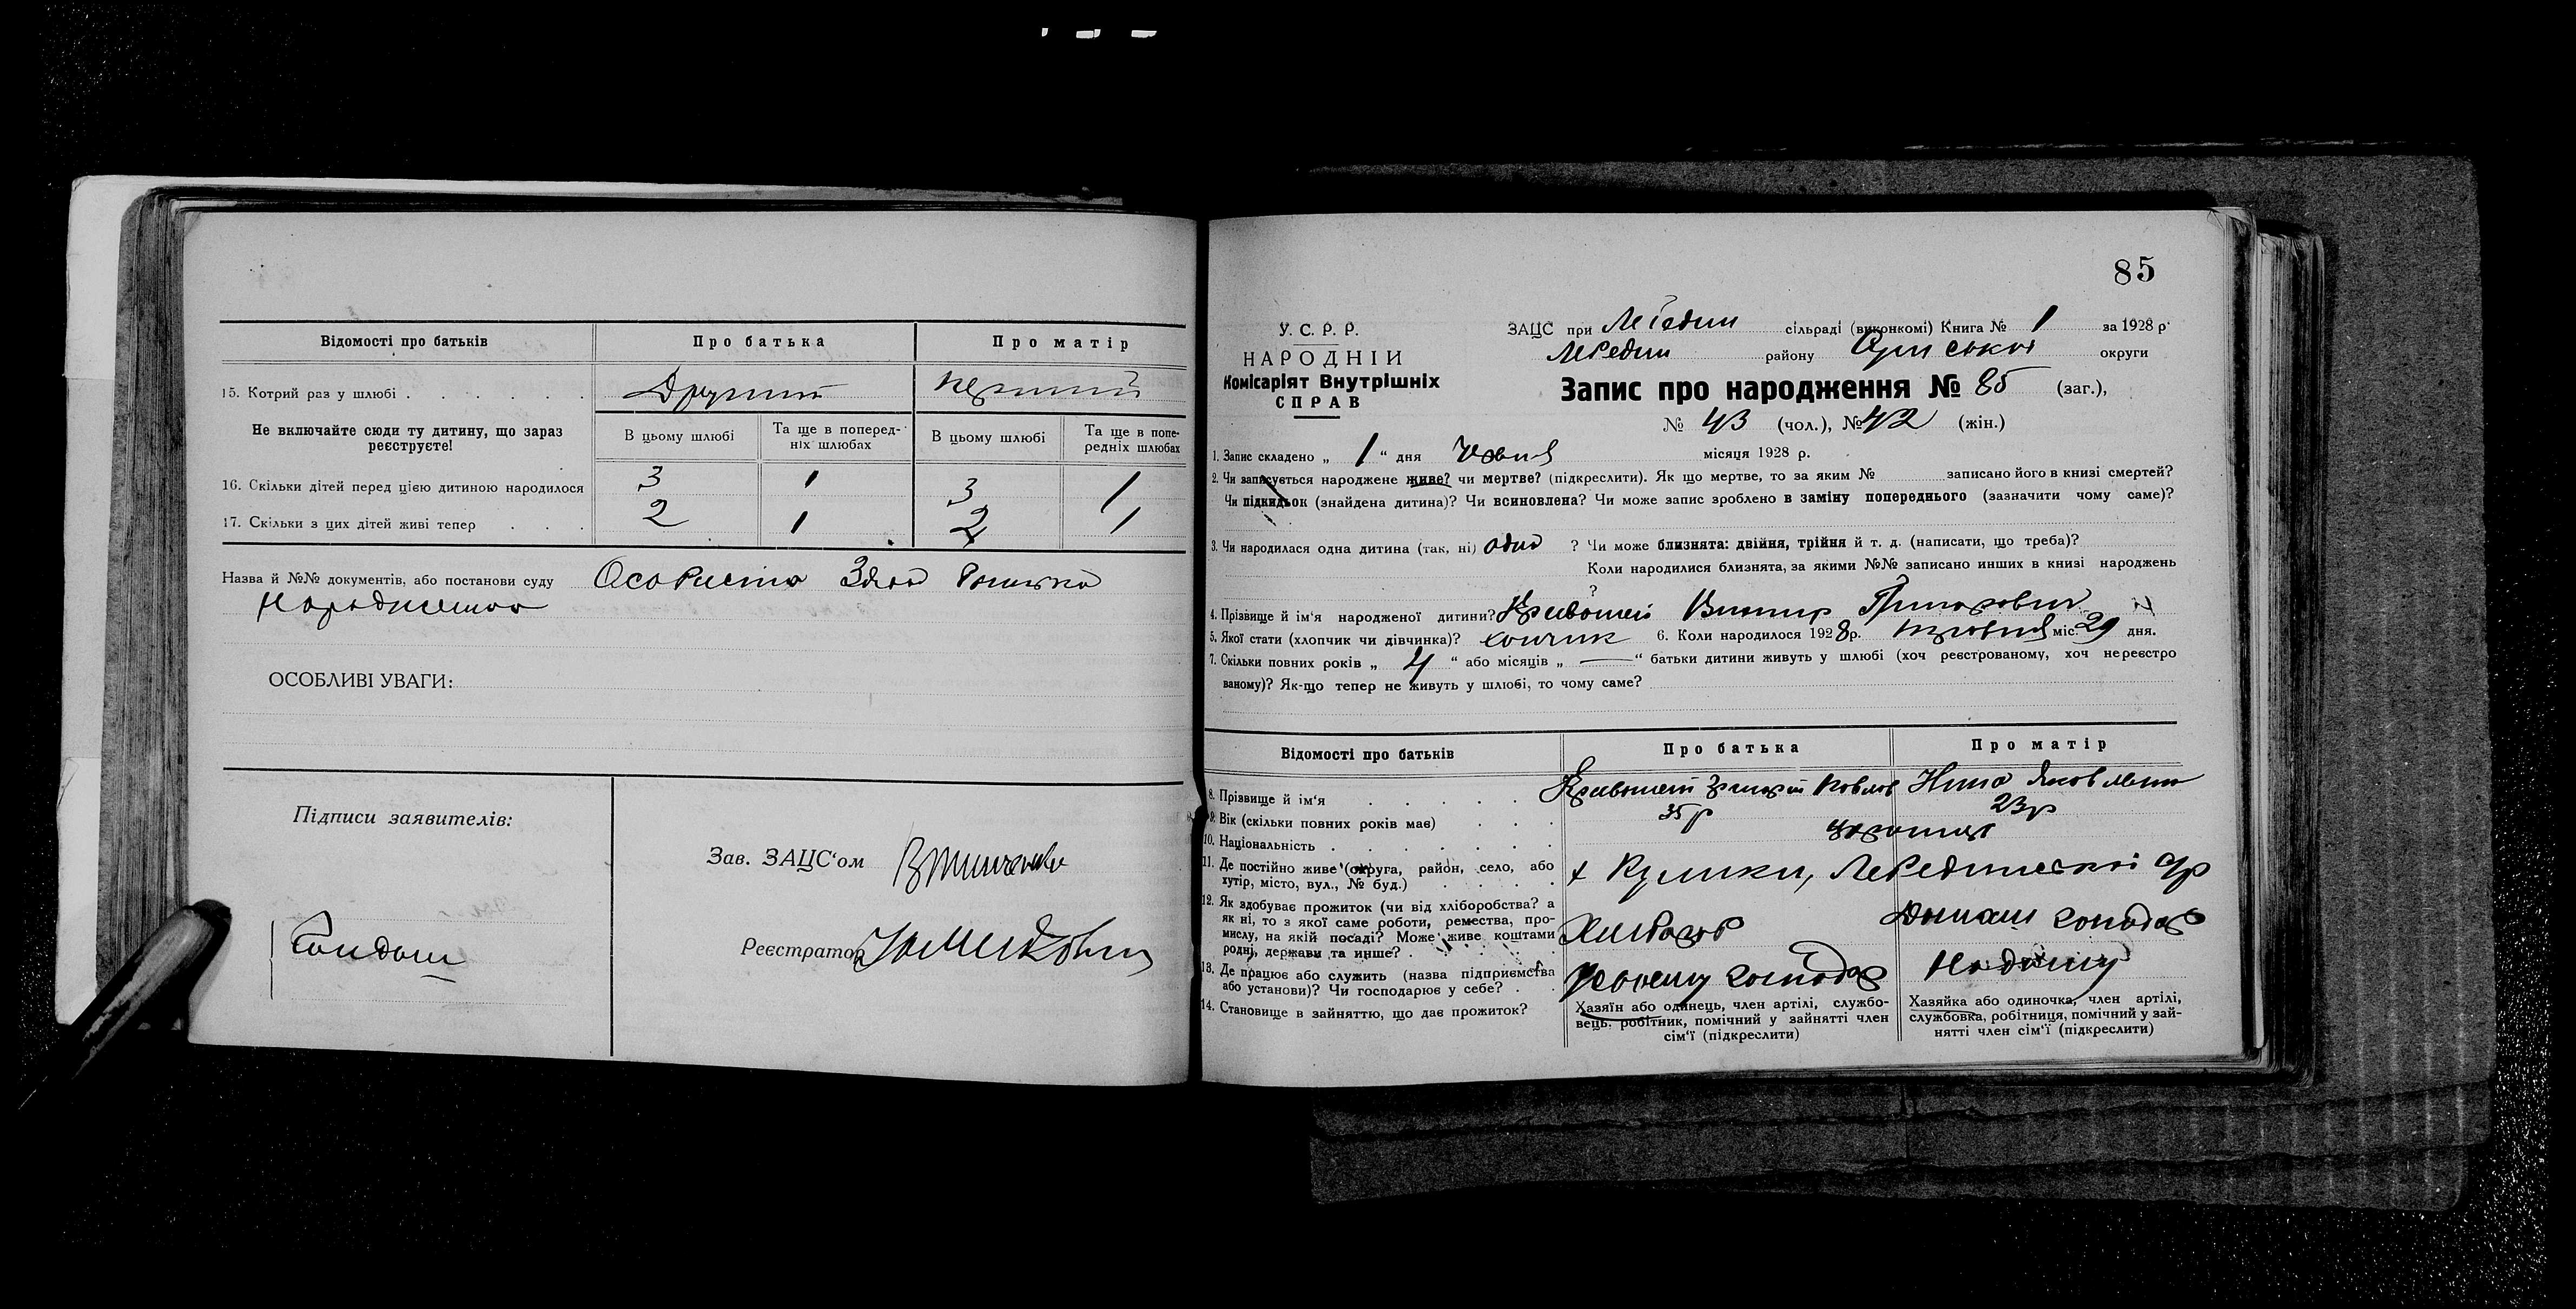 Відомості про батьків Про батька Про матір
15. Котрий раз у шлюбі Другий первий
Не включайте сюди ту дитину, що зараз реєструєте!
В цьому шлюбі Та ще в поперед-ніх шлюбах В цьому шлюбі Та ще в попе-редніх шлюбах
16. Скільки дітей перед цією дитиною народилося 3 1 3 1
17. Скільки з цих дітей живі тепер 2 1 2 1
Назва й №№ документів, або постанови суду Особиста
ОСОБЛИВІ УВАГИ:
Підписи заявителів:
Зав. ЗАЦС'ом
Реєстратор
85
У. С. Р. Р.
НАРОДНІЙ
Комісаріят Внутрішніх
СПРАВ
ЗАЦС при Лебедин сільраді (виконкомі) Книга № 1 за 1928 р.
Лебедин району Сумської округи
Запис про народження № 85 (заг.),
№ 43 (чол.), № 42 (жін.)
1. Запис складено „ 1 “ дня Червня місяця 1928 р.
2. Чи записується народжене живе? чи мертве? (підкреслити). Як що мертве, то за яким № записано його в книзі смертей?
Чи підкидьок (знайдена дитина)? Чи всиновлена? Чи може запис зроблено в заміну попереднього (зазначити чому саме)?
3. Чи народилася одна дитина (так, ні) одно ? Чи може близнята: двійня, трійня й т. д. (написати, що треба)?
Коли народилися близнята, за якими №№ записано инших в книзі народжень
?
4. Прізвище й ім'я народженої дитини? Кривошей
5. Якої стати (хлопчик чи дівчинка)? хопчик 6. Коли народилося 1928 р. міс. 29 дня.
7. Скільки повних років „ 4 “ або місяців „ — “ батьки дитини живуть у шлюбі (хоч реєстрованому, хоч нереєстро
ваному)? Як-що тепер не живуть у шлюбі, то чому саме?
Відомості про батьків Про батька Про матір
8. Прізвище й ім'я Кривошей Нина Яковлевна
9. Вік (скільки повних років має) 35 р 23 р
10. Національність
11. Де постійно живе (округа, район, село, або
хутір, місто, вул., № буд.) х Кулики, Лебединської
12. Як здобуває прожиток (чи від хліборобства? а
як ні, то з якої саме роботи, ремества, про-
мислу, на якій посаді? Може живе коштами
родні, держави та инше? Хлібороб
13. Де працює або служить (назва підприємства
або установи)? Чи господарює у себе?
14. Становище в зайняттю, що дає прожиток?
Хазяїн або одинець, член артілі, службо-
вець, робітник, помічний у зайнятті член
сім'ї (підкреслити)
Хазяйка або одиночка, член артілі,
службовка, робітниця, помічний у зай-
нятті член сім'ї (підкреслити)